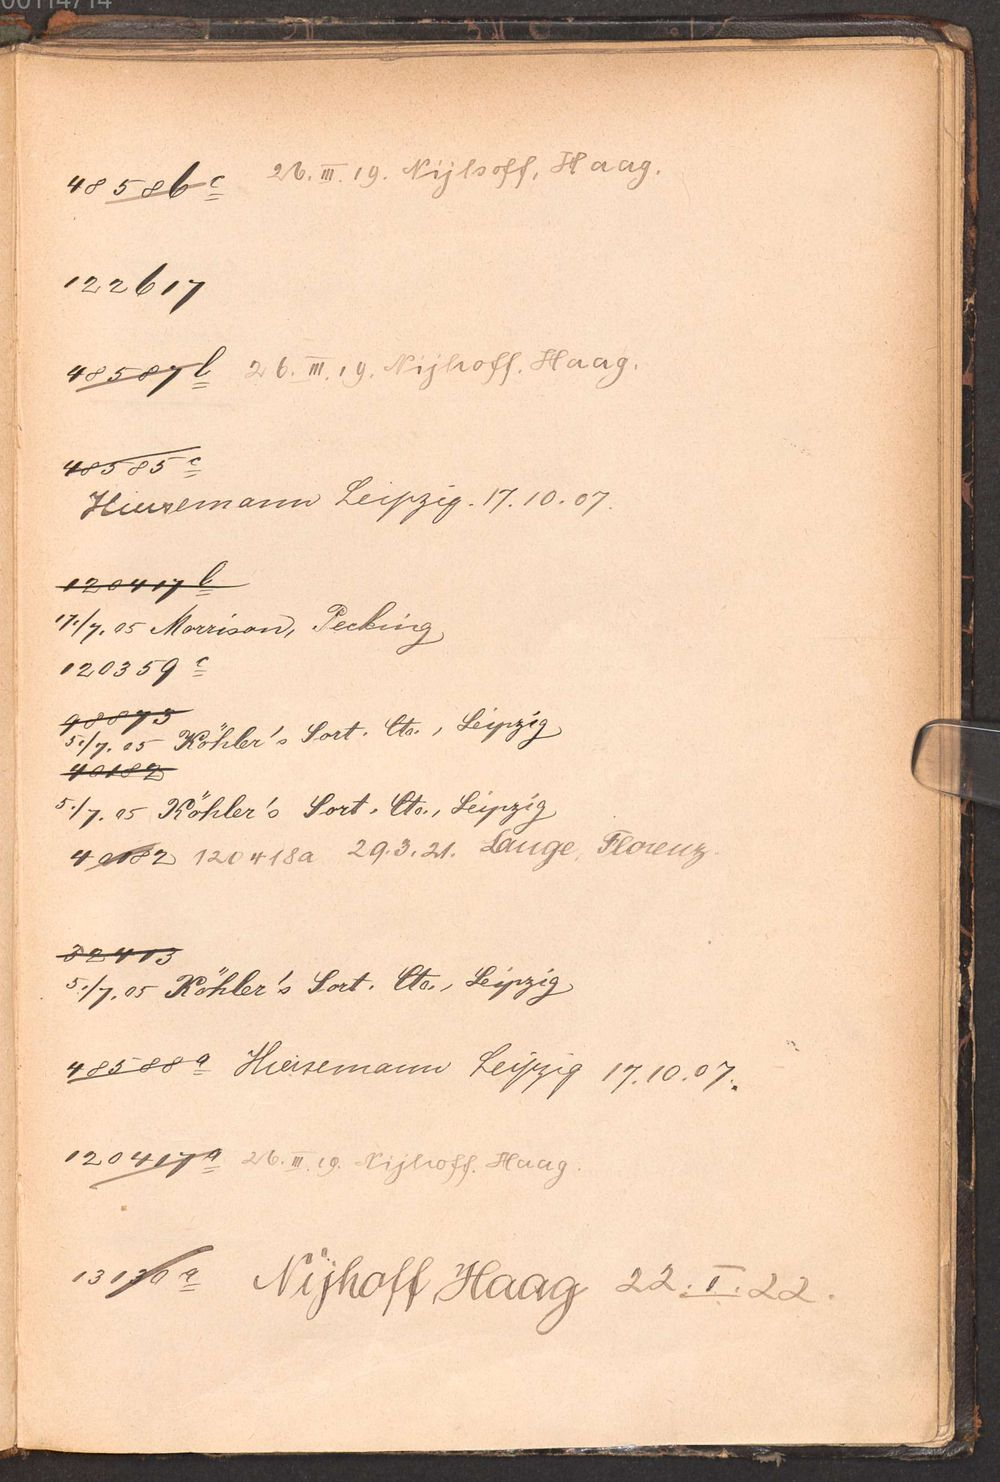 00114714
48586 c 26. III. 19. Nijhoff, Haag.
122617
48587 b 26. III. 19. Nijhoff. Haag.
48585 c
Hiersemann Leipzig. 17. 10. 07.
120417 b
17./7. 05 Morrison, Pecking
120359 c
98873
5./7. 05 Köhler's Sort. Cto., Leipzig
40182
5./7. 05 Köhler's Sort. Cto., Leipzig
40182 120418a 29.3.21. Lange, Florenz.
32413
5./7. 05 Köhler's Sort. Cto., Leipzig
48588 a Hiersemann Leipzig 17. 10. 07.
120417 a 26. III. 19. Nijhoff. Haag.
13130 a Nijhoff, Haag 22. I. 22.